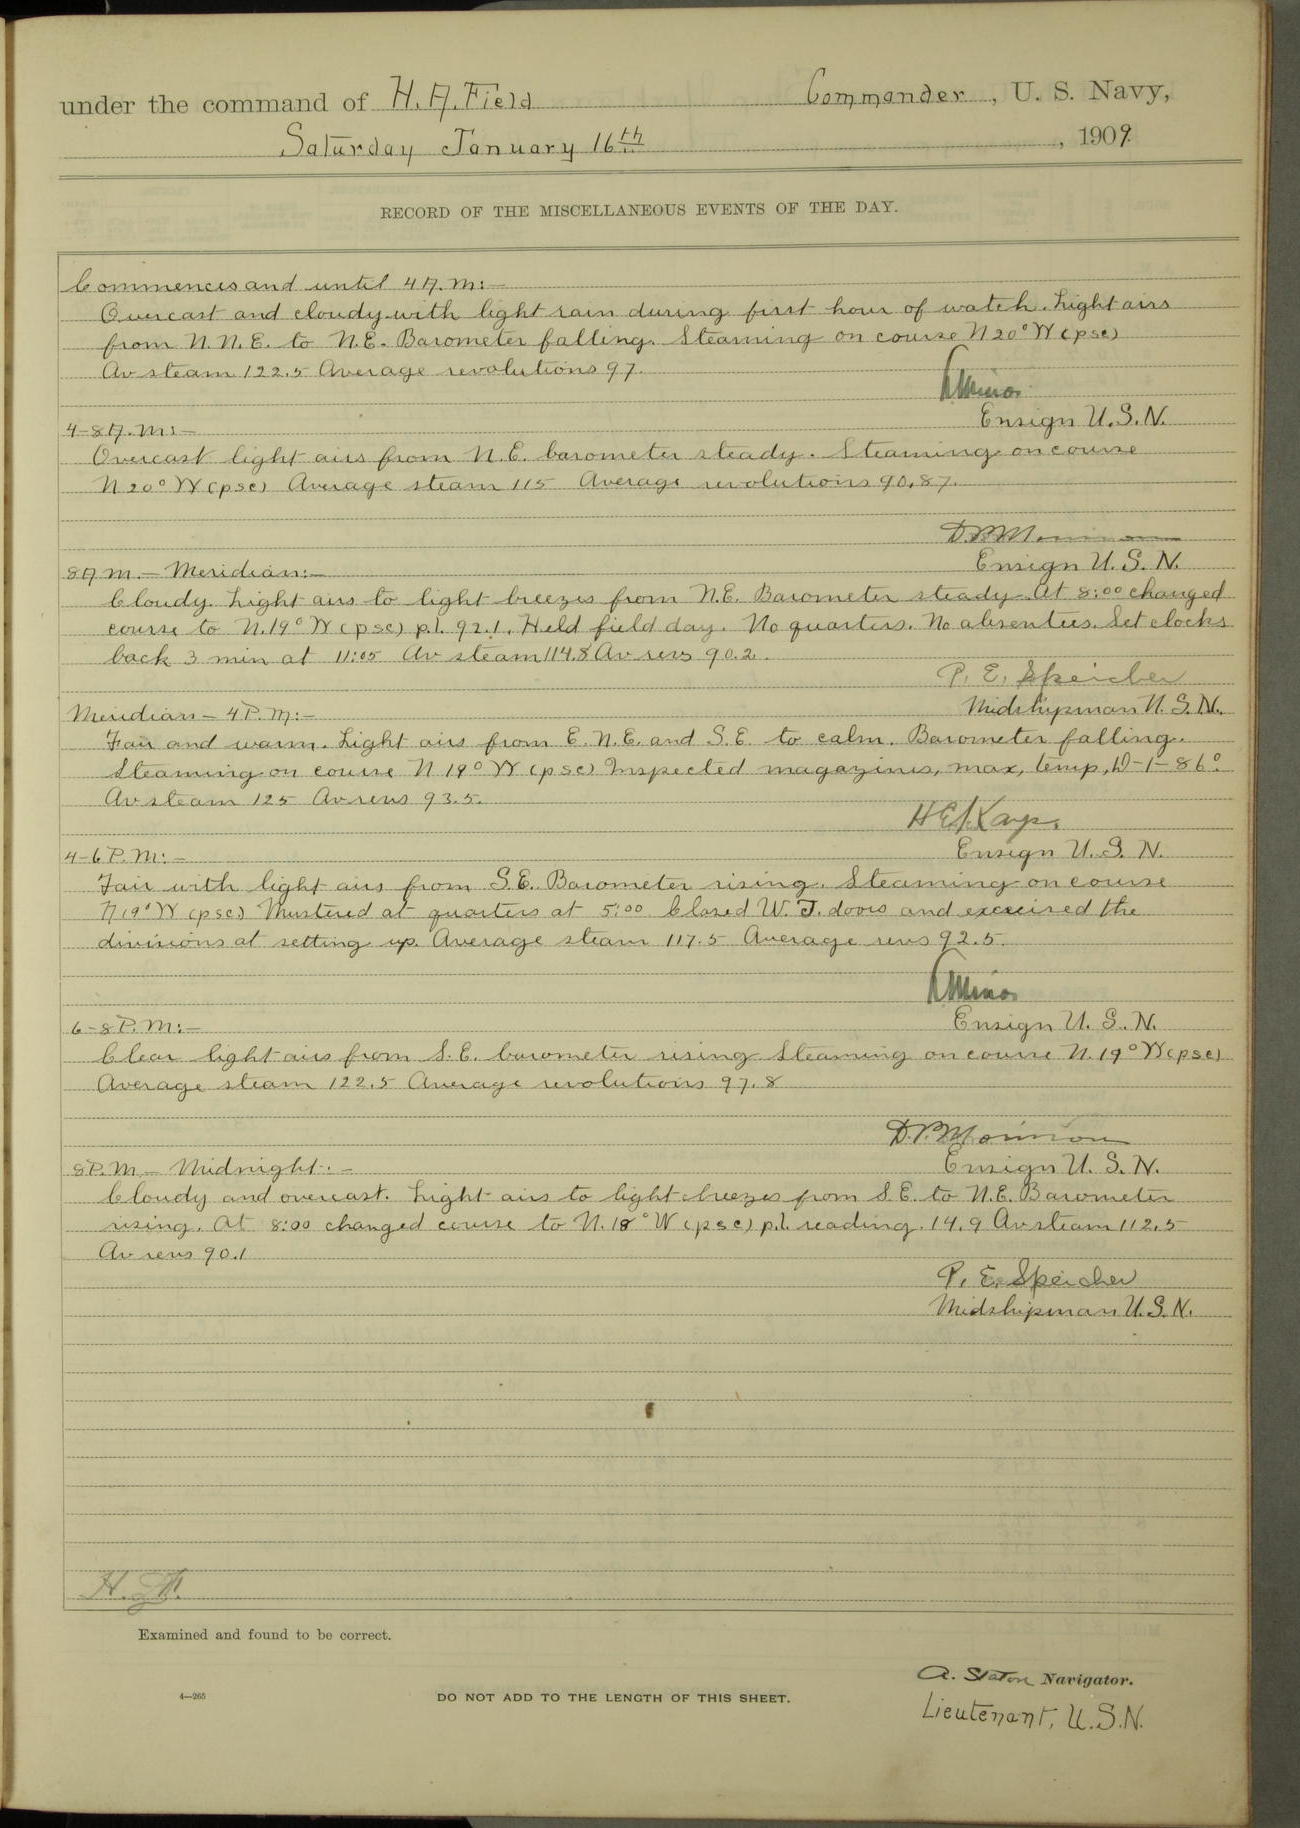 under the command of H. A. Field Commander, U. S. Navy,
Saturday January 16th, 1909
RECORD OF THE MISCELLANEOUS EVENTS OF THE DAY.
Commences and until 4 A.M:-
Overcast and cloudy with light rain during first hour of watch. Light airs
from N.N.E. to N.E. Barometer falling. Steaming on course N20°W (psc)
Av steam 122.5 Average revolutions 97.
Ensign U.S.N.
4-8 A.M:-
Overcast light airs from N.E. barometer steady. Steaming on course
N20°W (psc) Average steam 115 Average revolutions 90.87.
Ensign U.S.N.
8 A M.- Meridian:-
Cloudy. Light airs to light breezes from N.E. Barometer steady. At 8:00 changed
course to N.19°W (psc) p.l. 92.1. Held field day. No quarters. No absentees. Set clocks
back 3 min at 11:05 Av steam 114.8 Av revs 90.2.
P. E. Speicher
Midshipman U.S.N.
Meridian - 4 P.M:-
Fair and warm. Light airs from E.N.E. and S.E. to calm. Barometer falling.
Steaming on course N19°W (psc) Inspected magazines, max, temp, D-1-86°.
Av steam 125 Av revs 93.5.
Ensign U.S.N.
4-6 P.M:-
Fair with light airs from S.E. Barometer rising. Steaming on course
N19°W (psc) Mustered at quarters at 5:00 Closed W.T. doors and excecised the
divisions at setting up. Average steam 117.5 Average revs 92.5.
Ensign U.S.N.
6-8 P.M:-
Clear light airs from S.E. barometer rising Steaming on course N.19°W (psc)
Average steam 122.5 Average revolutions 97.8
Ensign U.S.N.
8 P.M.- Midnight:-
Cloudy and overcast. Light airs to light breezes from S.E. to N.E. Barometer
rising. At 8:00 changed course to N.18°W (psc) p.l. reading. 14.9 Av steam 112.5
Av revs 90.1
P. E. Speicher
Midshipman U.S.N.
Examined and found to be correct.
A. Staton Navigator.
4—265 DO NOT ADD TO THE LENGTH OF THIS SHEET.
Lieutenant, U.S.N.